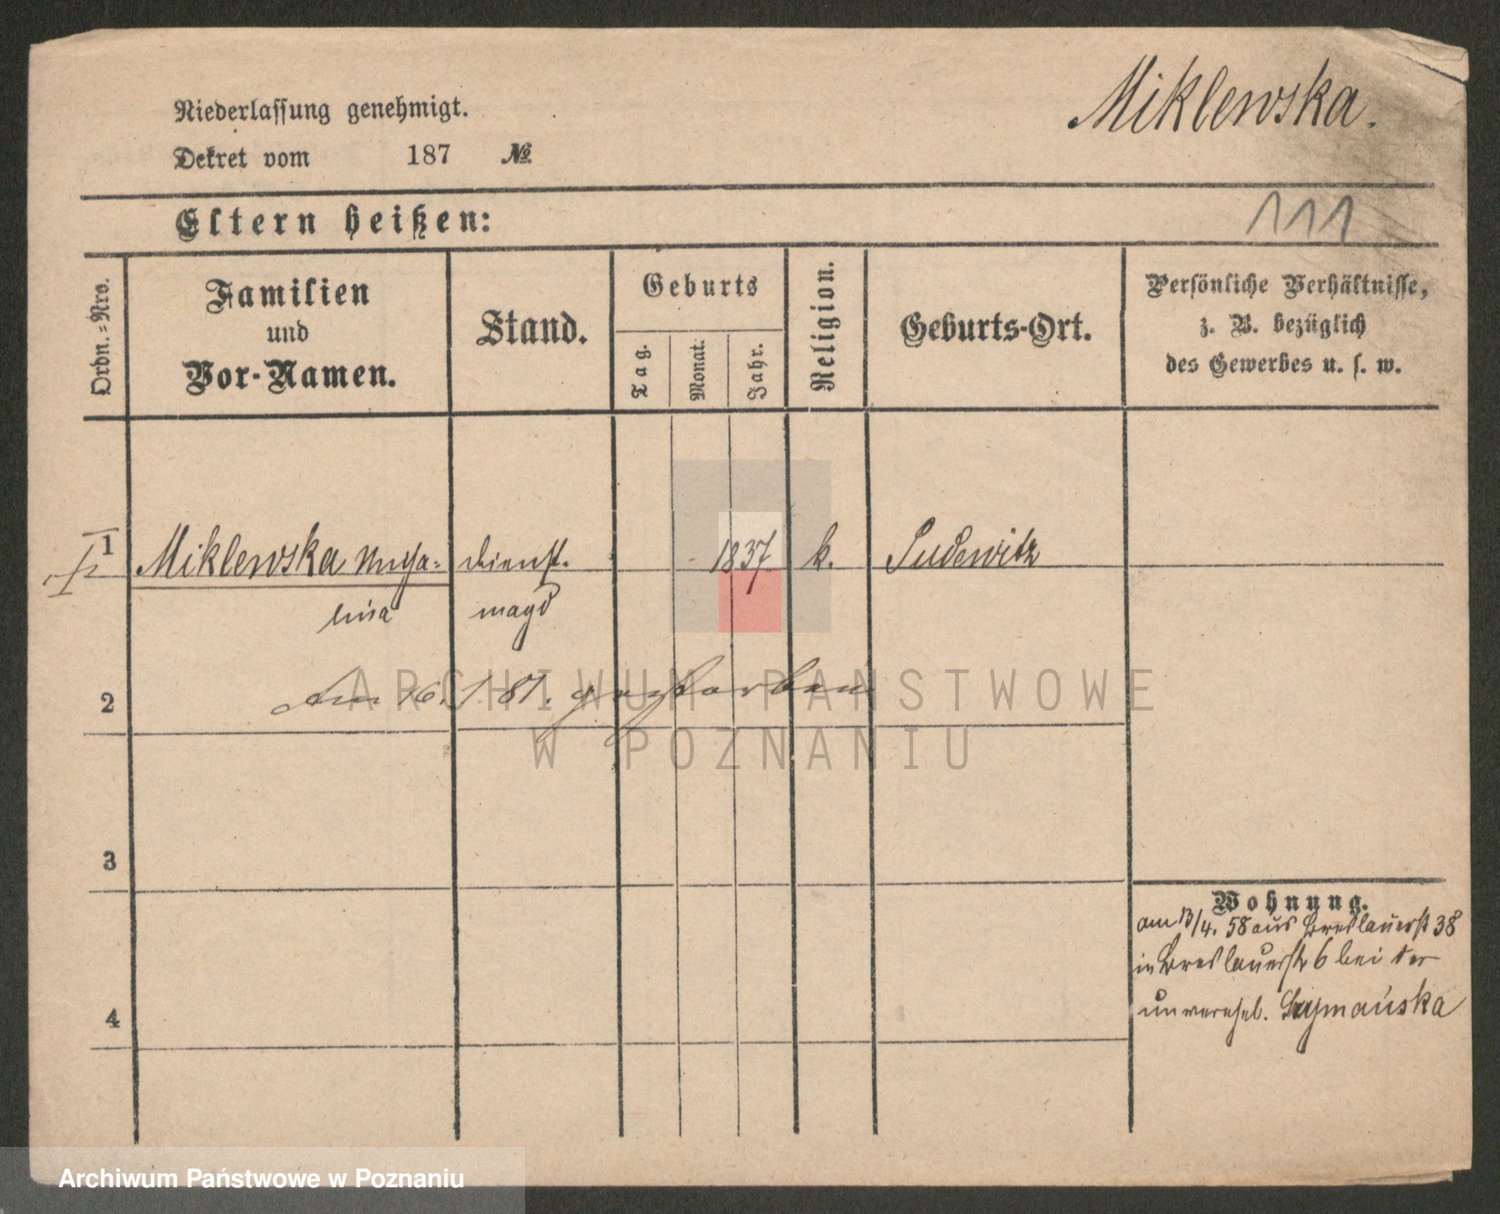 Niederlassung genehmigt.
Miklewska.
Dekret vom 187 №
Eltern heißen:
111
Ordn.-Nro.
Familien
und
Vor-Namen.
Stand.
Geburts
Tag.
Monat.
Jahr.
Religion.
Geburts-Ort.
Persönliche Verhältnisse,
z. B. bezüglich
des Gewerbes u. s. w.
1 Miklewska dienst- 1837 k. Pudewitz
lina magd
2 am 16. 1 81. gestorben
ARCHIWUM PAŃSTWOWE
W POZNANIU
3
Wohnung.
am 13/4. 58 aus Breslauerst 38
in Breslauerst 6 bei der
4
unverehel. Szymańska
Archiwum Państwowe w Poznaniu